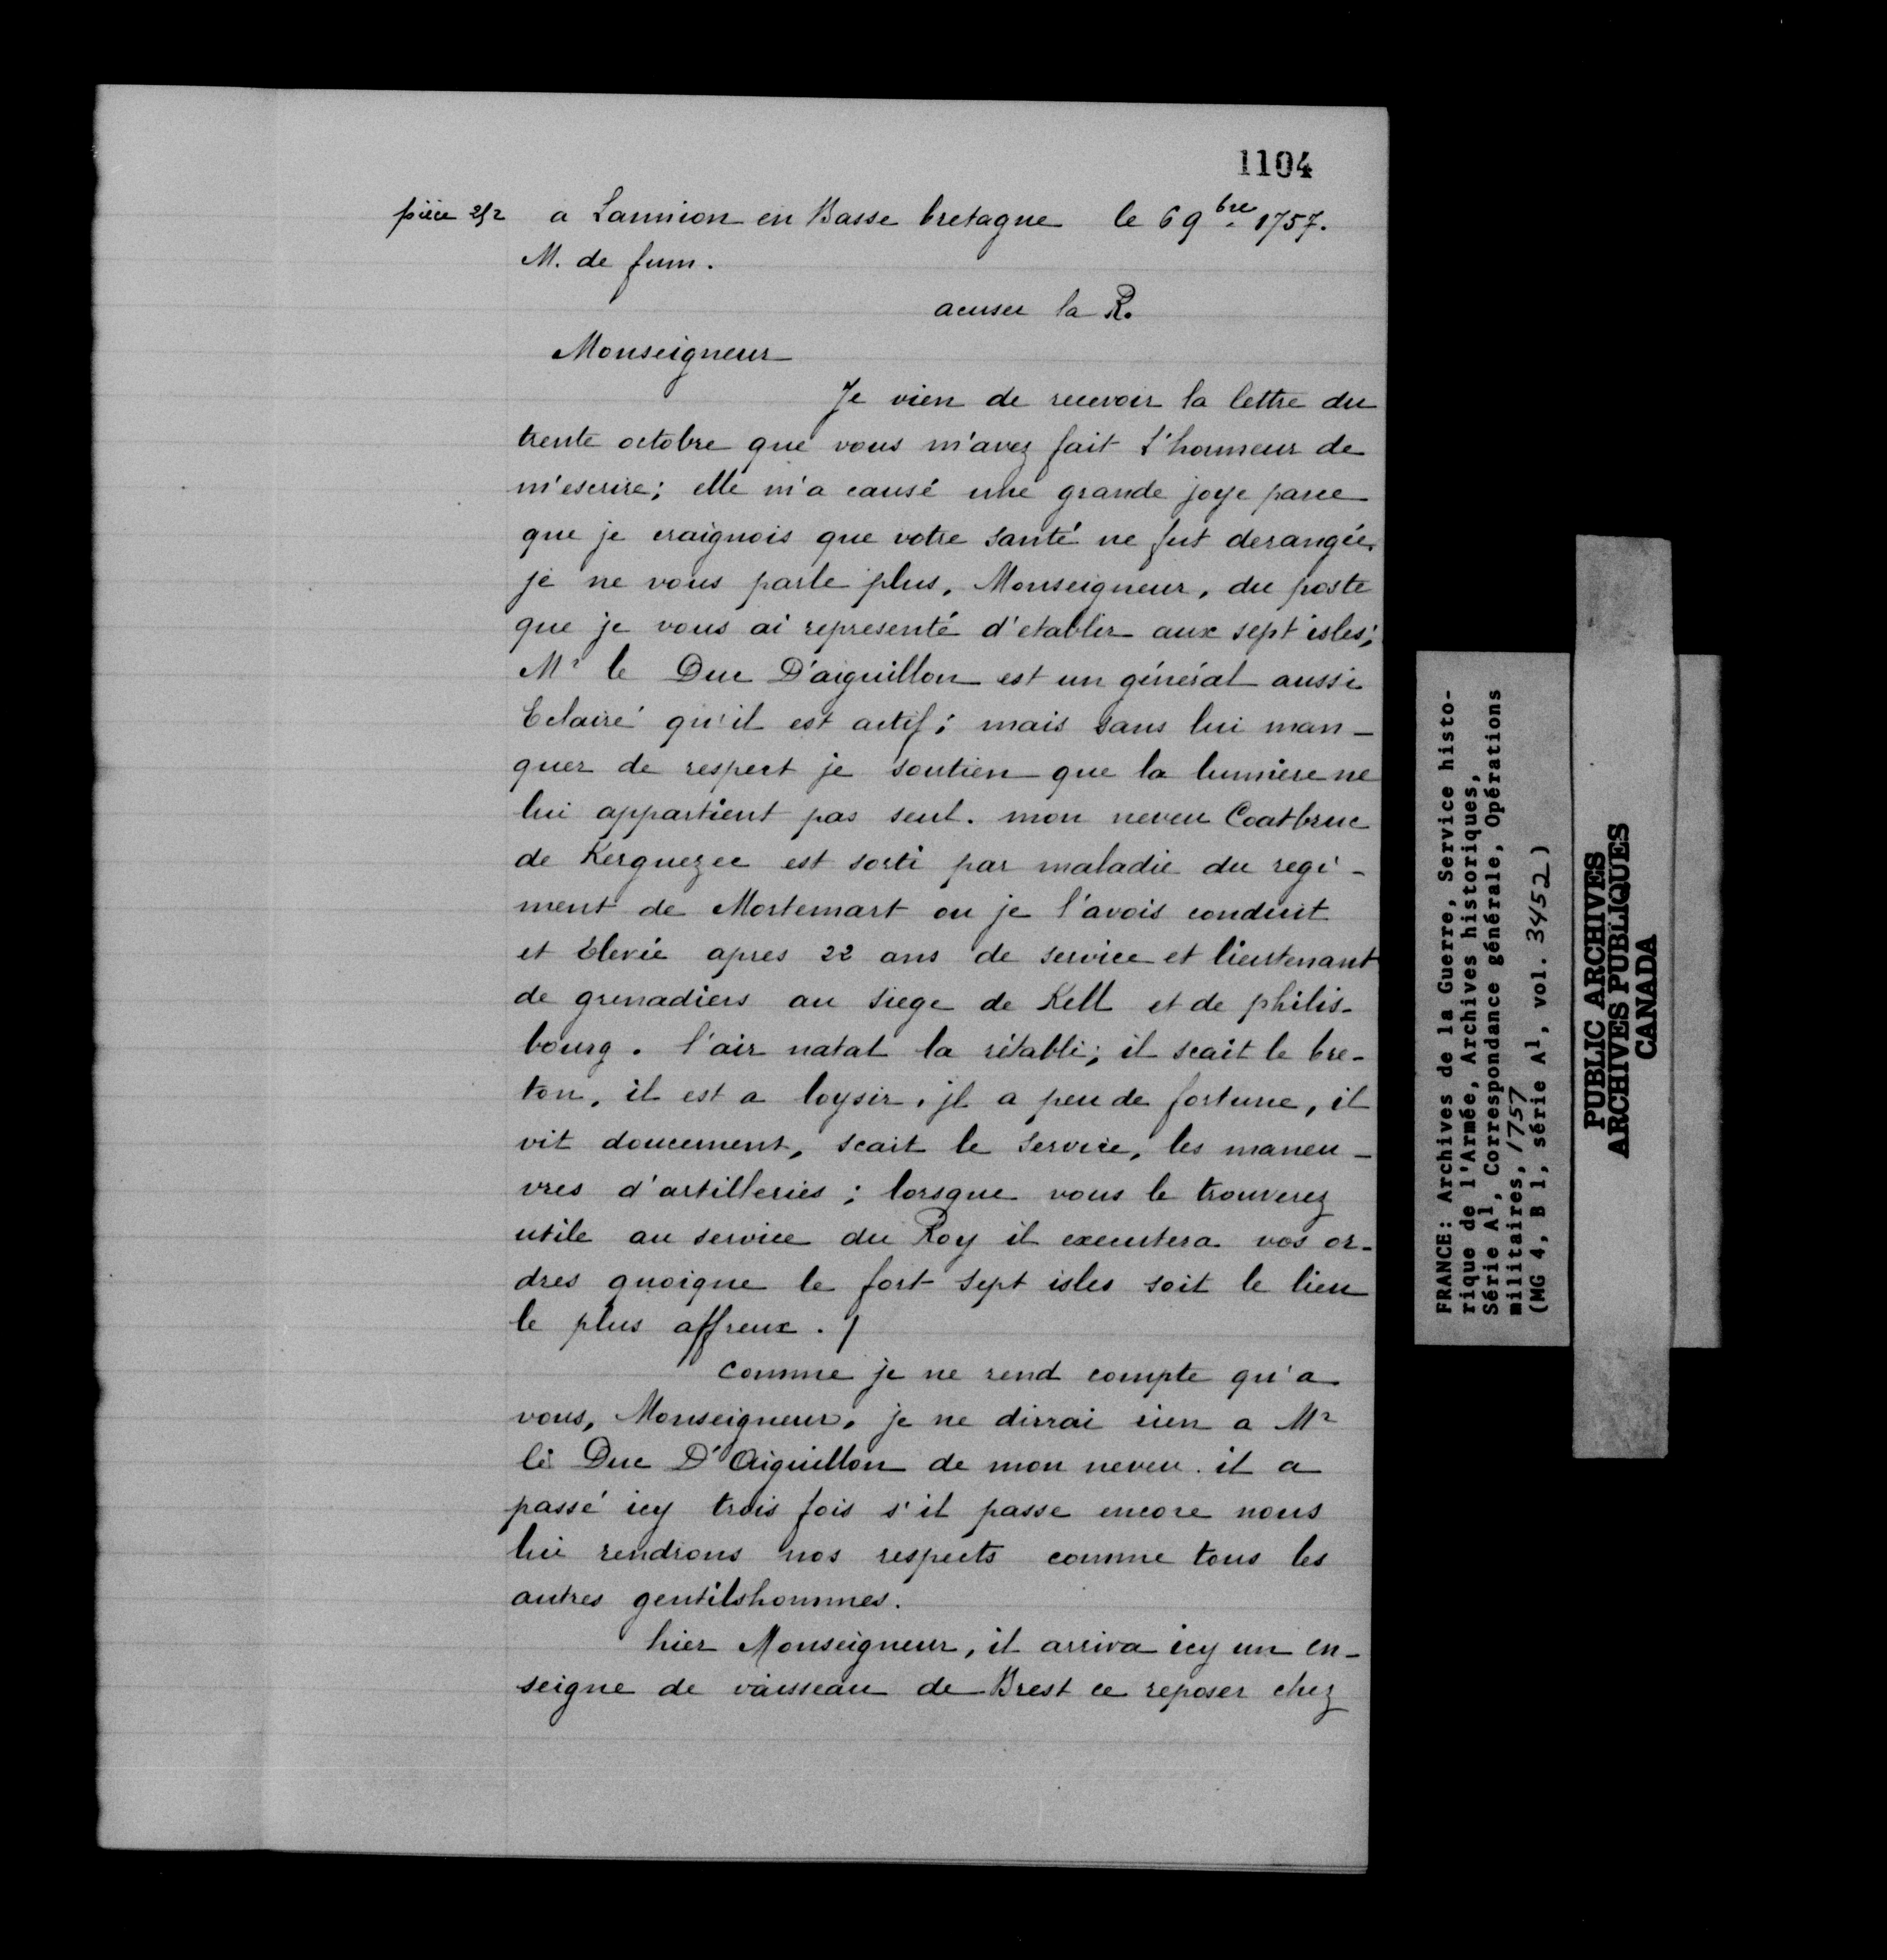 1104
pièce 252 a Lannion en Basse bretagne le 6 9bre 1757.
M. de fum.
acuser la R.
Monseigneur
Je vien de recevoir la lettre du
trente octobre que vous m'avez fait l'honneur de
m'escrire; elle m'a causé une grande joye parce
que je craignois que votre santé ne fut derangée.
je ne vous parle plus, Monseigneur, du poste
que je vous ai representé d'etablir aux sept isles;
Mr le Duc D'aiguillon est un général aussi
Eclairé qu'il est actif; mais sans lui man-
quer de respect je soutien que la lumiere ne
lui appartient pas seul. mon neveu Coatbruc
de Kerguezec est sorti par maladie du regi-
ment de Mortemart ou je l'avois conduit
et Elevée apres 22 ans de service et lieutenant
de grenadiers au siege de Kell et de philis-
bourg. l'air natal la rétabli; il scait le bre-
ton, il est a loysir, jl a peu de fortune, il
vit doucement, scait le service, les maneu-
vres d'artilleries; lorsque vous le trouverez
utile au service du Roy il executera vos or-
dres quoique le fort sept isles soit le lieu
le plus affreux. /
comme je ne rend compte qu'a
vous, Monseigneur, je ne dirrai rien a Mr
le Duc D'Aiguillon de mon neveu. il a
passé icy trois fois s'il passe encore nous
lui rendrons nos respects comme tous les
autres gentilshommes.
hier Monseigneur, il arriva icy un en-
seigne de vaisseau de Brest ce reposer chez
FRANCE: Archives de la Guerre, Service histo-
rique de l'Armée, Archives historiques,
Série A1, Correspondance générale, Opérations
militaires, 1757
(MG 4, B 1, série A1, vol. 3452)
PUBLIC ARCHIVES
ARCHIVES PUBLIQUES
CANADA